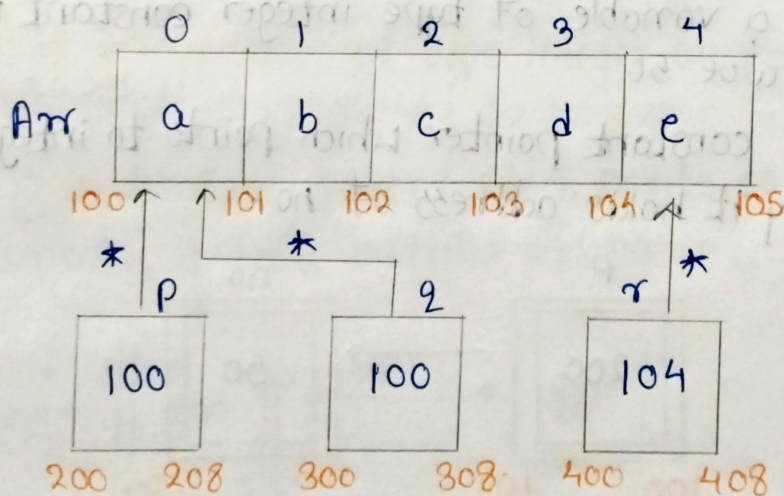 0 1 2 3 4
Arr a b c d e
100 101 102 103 104 105
* * *
p q r
100 100 104
200 208 300 308 400 408